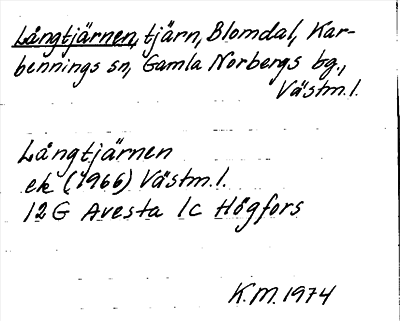 Långtjärnen, tjärn, Blomdal, Kar-
bennings sn, Gamla Norbergs bg.,
Västm.l.
Långtjärnen
ek (1966) Västm.l.
12G Avesta 1c Högfors
K.M. 1974